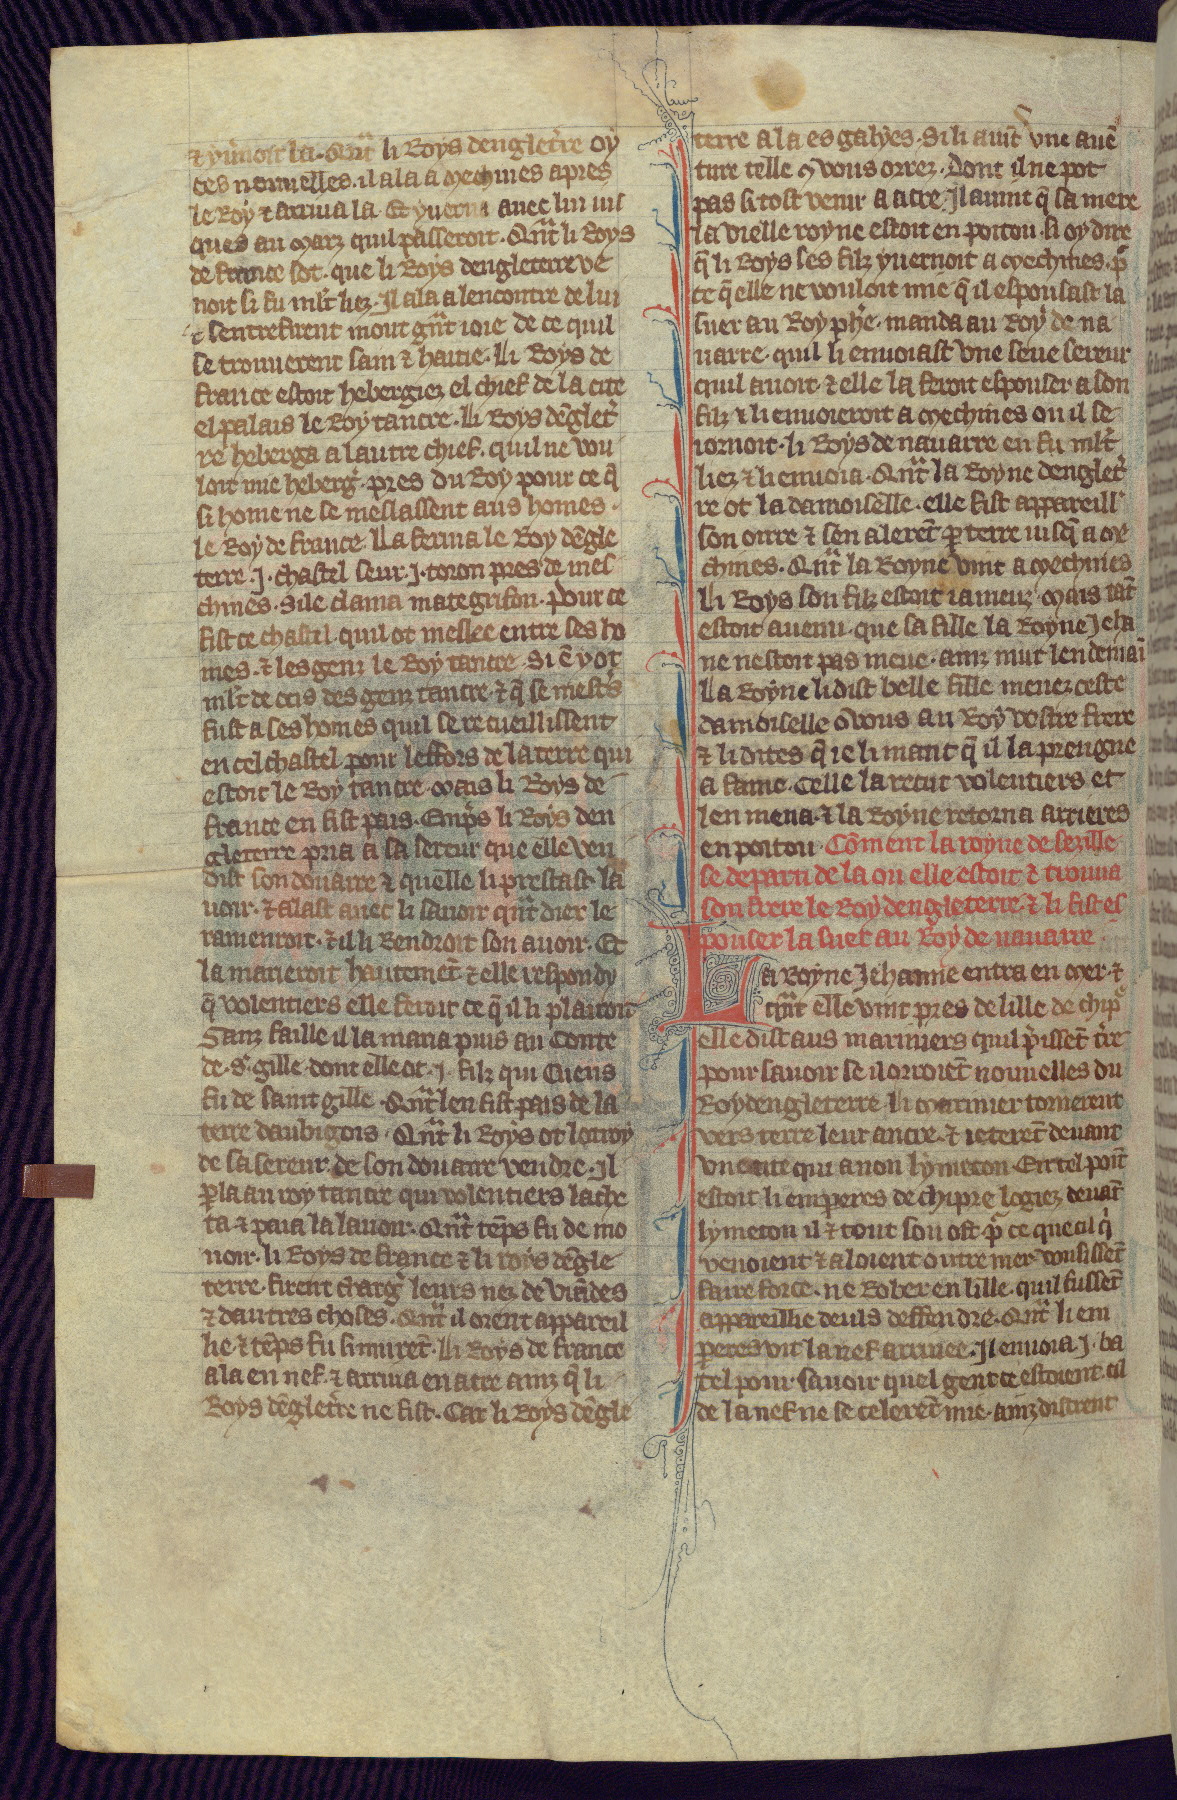 ⁊ yu̾noit la. Qn̄t li Roys dengleťre oy
ces nouuelles. il ala a mechines apres
le Roy ⁊ arriua la. Et yuerna auec lui iuſ
ques au marz quil paſſeroit. Qn̄t li Roys
de france ſot. que li Roys dengleterre ve
noit ſi fu ml̾t liez. Il ala alencontre de lui
⁊ ſentrefirent mout gn̄t ioie de ce quil
ſe trouuerent ſain ⁊ haitie. Li Roys de
france eſtoit hebergiez el chief de la cite
el palais le Roy tancre. Li Roys dēgleť
re heberga a lautre chief. quil ne vou
loit mie heberḡ. pres du Roy pour ce q̄
ſi home ne ſe meſlaſſent aus homes.
le Roy de france. La ferma le Roy dēgle
terre .J. chaſtel ſeur .J. toron pres de meſ
chines. Si le clama mategrifon. Pour ce
fiſt ce chaſtel. quil ot meſlee entre ſes ho
mes. ⁊ les genz le Roy tancre. Si ē y ot
ml̾t de ocis des genz tancre. ⁊ q̄ ſe meſť̄s
fuſt a ſes homes quil ſe recueilliſſent
en cel chaſtel pour leffors de la terre qui
eſtoit le Roy tancre. Mais li Roys de
france en fiſt pais. Emp̾s li Roys den
gleterre pria a ſa ſereur que elle ven
diſt ſon douaire ⁊ quelle li preſtaſt la
uoir. ⁊ alaſt auec li ſauoir qn̄t dier le
ramenroit. ⁊ il li Rendroit ſon auoir. Et
la marieroit hautemēt ⁊ elle reſpondy
q̄ volentiers elle feroit ce q̄ il li plairoit
Sanz faille il la maria puis au Conte
de .S̄. gille. dont elle ot .J. filz qui Cuens
fu de ſaint gille. Qn̄t len fiſt pais de la
terre daubigois. Qn̄t li Roys ot lotroy
de ſa ſereur de ſon douaire vendre. Il
ꝑla au roy tancre qui volentiers lache
ta ⁊ paia la lauoir. Qn̄t tēps fu de mo
uoir. li Roys de france ⁊ li roys dēgle
terre. firent charḡ leurs nez de viādes
⁊ dautres choſes. Qn̄t il orent appareil
lie ⁊ tēps fu ſi murēt. Li Roys de france
ala en nef. ⁊ arriua en acre ainz q̄ li
Roys dēgleťre ne fiſt. Car li Roys dēgle
terre ala es galyes. Si li auīt vne auē
ture telle ꝯ vous orrez. Dont il ne pot
pas ſi toſt venir a acre. Il auint q̄ ſa mere
la vielle royne eſtoit en poitou. ſi oy dire
q̄ li Roys ſes filz yuernoit a mechines. p̄
ce q̄ elle ne vouloit mie q̄ il eſpouſaſt la
ſuer au Roy ph̄e. manda au Roy de na
uarre. quil li enuoiaſt vne ſeue ſereur
quil auoit. ⁊ elle la feroit eſpouſer a ſon
filz ⁊ li enuoieroit a mechines ou il ſe
iornoit. li Roys de nauarre en fu ml̾t
liez ⁊ li enuoia. Qn̄t la Royne dengleť
re ot la damoiſelle. elle fiſt appareill̾
ſon oirre ⁊ ſen alerēt ꝑ terre iuſq̄ a me
chines. Qn̄t la Royne vint a mechines
Li Roys ſon filz eſtoit ia meuz. Mais tāt
eſtoit auenu. que ſa fille la Royne Jeha
ne neſtoit pas meue. ainz mut lendemaī
La Royne li diſt belle fille menez ceſte
damoiſelle ꝯ vous au Roy voſtre frere
⁊ li dites q̄ ie li mant q̄ il la prengne
a fame. Celle la recut volentiers et
len mena. ⁊ la Royne retorna arrieres
en poitou. Cōment la royne de ſezille
ſe departi de la ou elle eſtoit ⁊ trouua
ſon frere le Roy dengleterre. ⁊ li fiſt eſ
pouſer la ſuer au Roy de nauarre.
La Royne Jehanne entra en mer. ⁊
qn̄t elle vint pres de lille de chip̄
elle diſt aus mariniers quil p̾iſſēt t̾re
pour ſauoir ſe il orroiēt nouuelles du
Roy dengleterre. Li marinier tornerent
vers terre leur ancre. ⁊ ieterēt deuant
vne cite qui a non lymeton. En tel poīt
eſtoit li emperes de chipre logiez deuāt
lymeton il ⁊ tout ſon oſt. p̄ ce que cil q̾
venoient ⁊ aloient outre mer vouſiſſēt
faire force. ne Rober en lille. quil fuſſēt
appareillie deuls deffendre. Qn̄t li em
peres vit la nef arriuee. Il enuoia .J. ba
tel pour ſauoir quel gent ce eſtoient. cil
de la nef ne ſe celerēt mie. ainz diſtrent